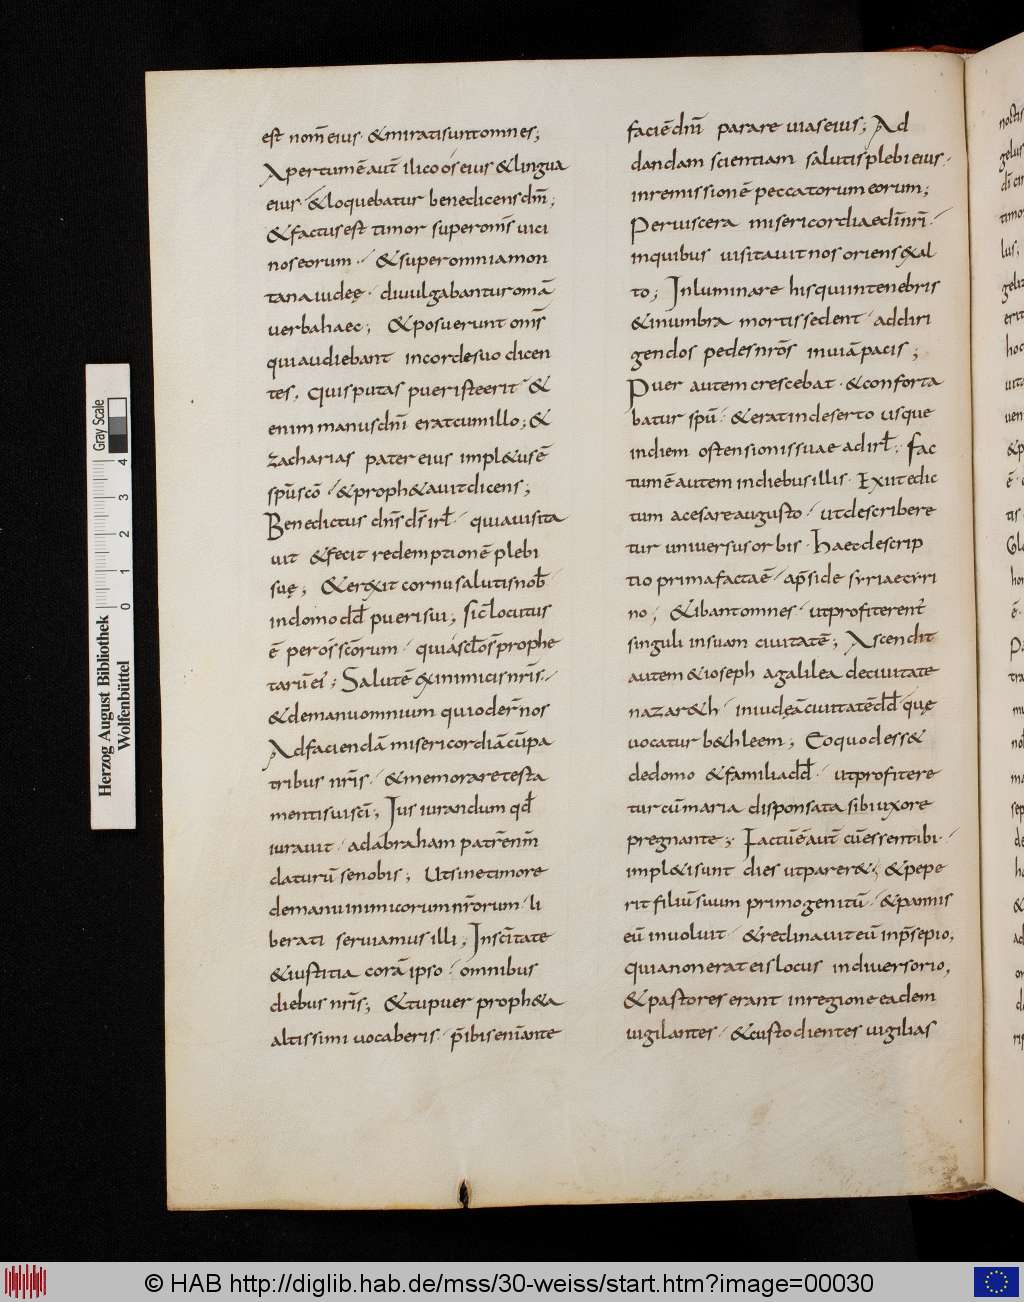 est nom̄ eius· & mirati sunt omnes;
Apertum ē aut̄ ilico os eius & lingua
eius·/ & loquebatur benedicens dm̄;
& factus est timor super om̄s uici
nos eorum·/ & super omnia mon
tana iudeę· diuulgabantur omā
uerba haec; & posuerunt om̄s
qui audiebant in corde suo dicen
tes, quis putas puer iste erit·/ &
enim manus dn̄i erat cum illo; &
zacharias pater eius impl&us ē
sp̄u sc̄o·/ & proph&auit dicens;
Benedictus dn̄s ds̄ irl̄·/ quia uisita
uit & fecit redemptionē plebi
suę; & er&xit cornu salutis nob̄
in domo dd̄ pueri sui, sic̄ locutus
ē per os̄ sc̄orum·/ qui a scl̄o s̄ prophe
tarū ei'; Salutē &x inimicis nr̄is·/
& de manu omnium qui oder̄ nos
Ad faciendā misericordiā cū pa
tribus nr̄is·/ & memorare testa
menti sui sc̄i; Ius iurandum qd̄
iurauit·/ ad abraham patrē nr̄m
daturū se nobis; Ut sine timore
de manu inimicorum nr̄orum·/ li
berati seruiamus illi; In sc̄itate
& iustitia corā ipso·/ omnibus
diebus nr̄is; & tu puer proph&a
altissimi uocaberis·/ p̄ibis enī ante
faciē dn̄i parare uias eius; Ad
dandam scientiam salutis plebi eius·/
in remissionē peccatorum eorum;
Per uiscera misericordiae dī nr̄i·/
in quibus uisitauit nos oriens &x al
to; Inluminare his qui in tenebris
& in umbra mortis sedent·/ ad diri
gendos pedes nr̄os in uiā pacis;
Puer autem crescebat· & conforta
batur sp̄u·/ & erat in deserto usque
in diem ostensionis suae ad irl̄·/ Fac
tum ē autem in diebus illis· Exiit edic
tum a cesare augusto·/ ut describere
tur uniuersus orbis· Haec descrip
tio prima facta ē·/ a p̄side syriae cyri
no; & ibant omnes·/ ut profiterent̄
singuli in suam ciuitatē; Ascendit
autem & ioseph a galilea de ciuitate
nazar&h·/ in iudęa ciuitatē dd̄·/ quę
uocatur b&hleem; Eo quod ess&
de domo & familia dd̄·/ ut profitere
tur cū maria disponsata sibi uxore
pregnante; Factū ē aut̄ cū essent ibi·/
impl&i sunt dies ut parer&·/ & pepe
rit filiū suum primogenitū·/ & pannis
eū inuoluit·/ & reclinauit eū in p̄sepio,
quia non erat eis locus in diuersorio,
& pastores erant in regione eadem
uigilantes·/ & custodientes uigilias
Herzog August Bibliothek
Wolfenbüttel
0 1 2 3 4
Gray Scale
© HAB http://diglib.hab.de/mss/30-weiss/start.htm?image=00030